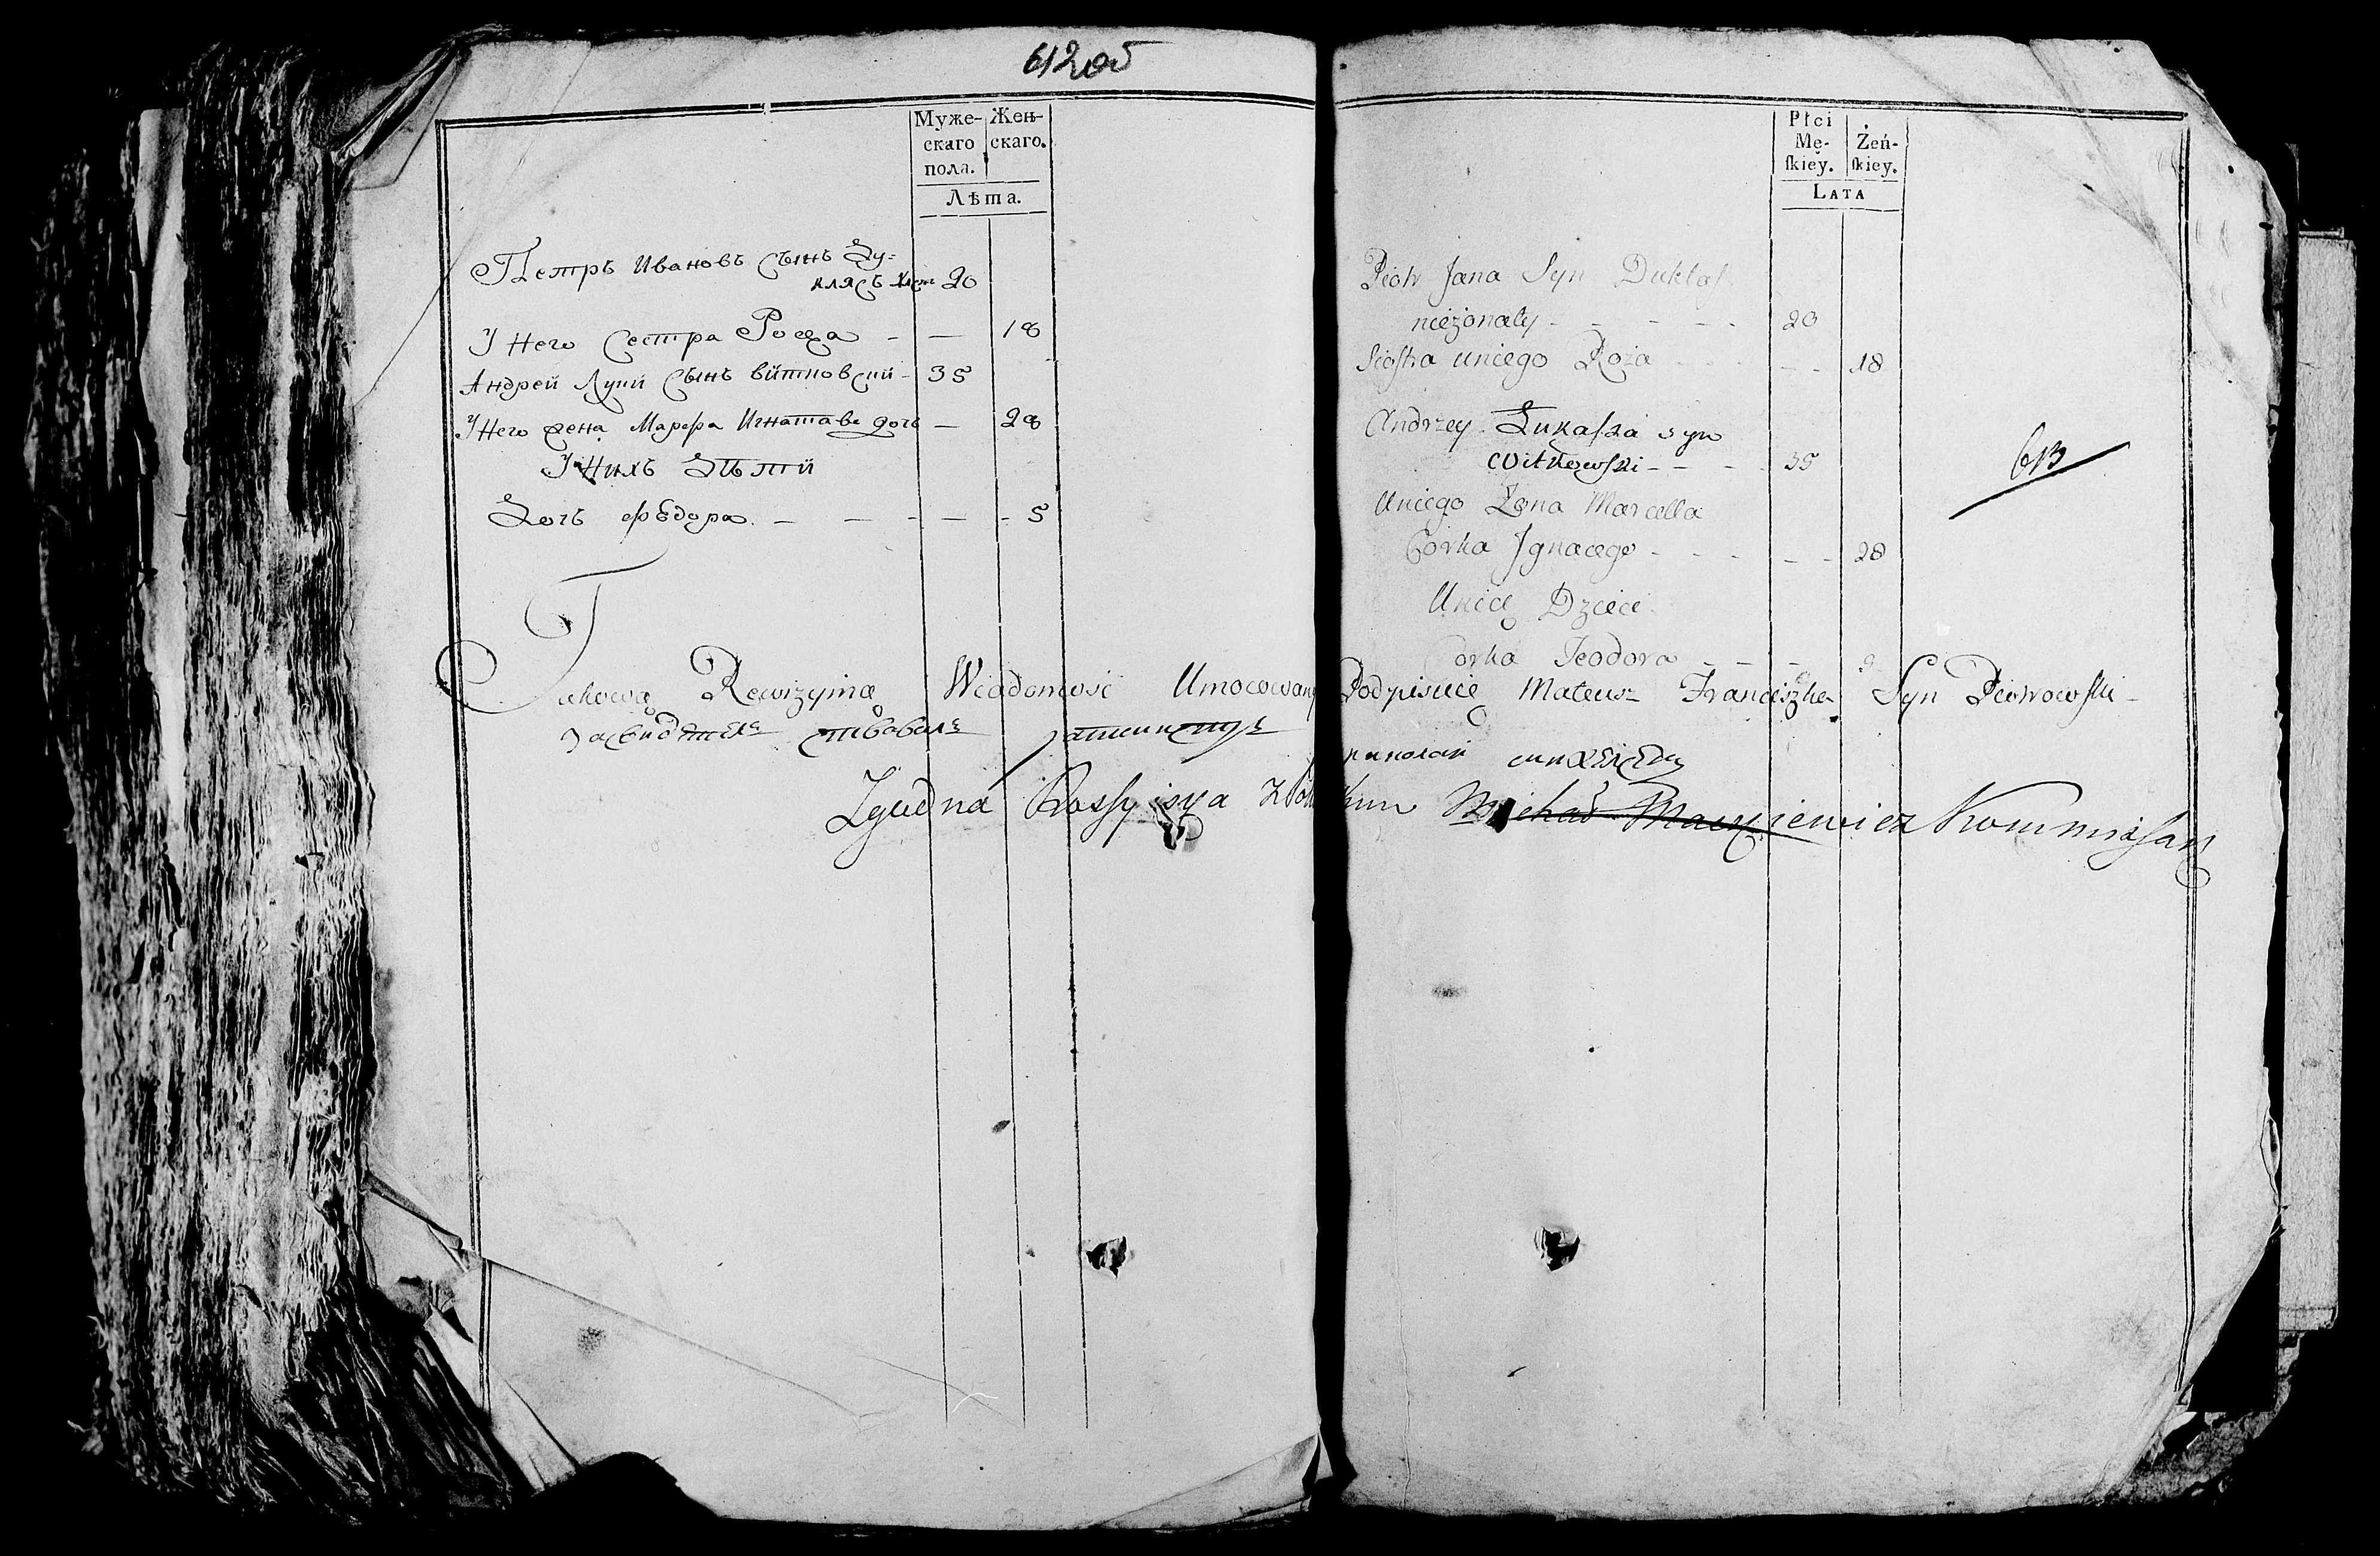 612об
Муже-
скаго
пола.
Жен-
скаго.
Лѣта.
Петръ Ивановъ Сынъ Ду=
клясъ 20
У Него Сестра Роза - — 18
Андрей Луки Сынъ Витковский - 35
У Него жена Марфа Игнатава дочь — 28
У Нихъ Дѣти
Дочь Федора. — — - — - 5
Płci
Mę-
ſkiey.
Żeń-
ſkiey.
LATA
Piotr Jana Syn Duklas
nieżonaty - - - - - 20
Siostra uniego Roża - - - - - 18
Andrzey Łukasza syn
Witkowski - - - 35
Uniego Żona Marcella
Corka Jgnacego - - - - - 28
Unich Dzieci
Corka Teodora - - -
613
Takową Rewizyiną Wiadomość Umocowany Podpisuię Mateusz Franciszka Syn Piotrowski -
Zgudna Michał Kommissarz